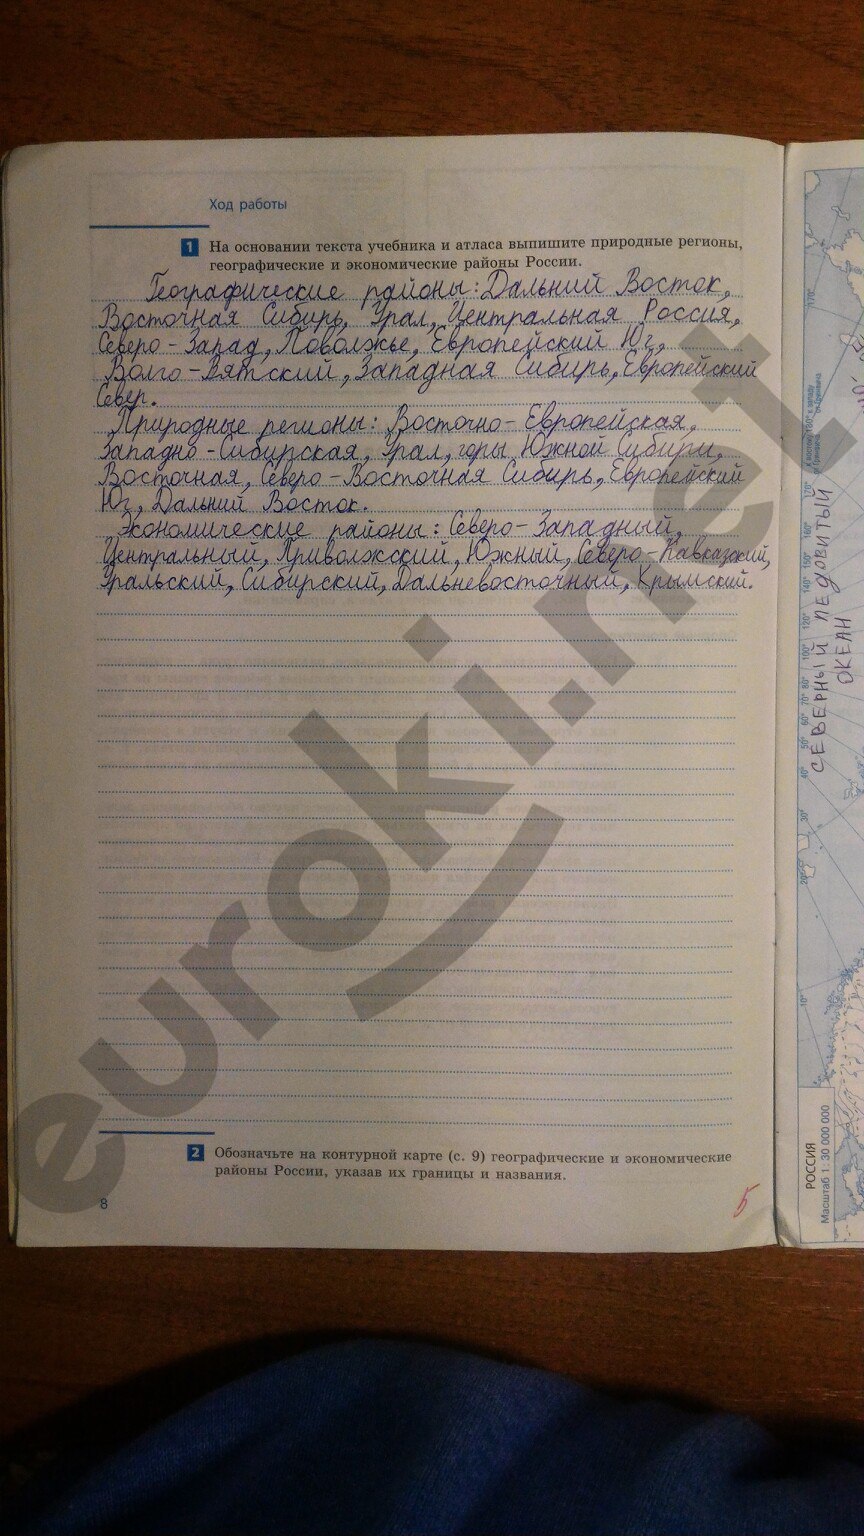 Ход работы
1 На основании текста учебника и атласа выпишите природные регионы,
географические и экономические районы России.
Географические районы: Дальний Восток,
Восточная Сибирь, Урал, Центральная Россия,
Северо-Запад, Поволжье, Европейский Юг,
Волго-Вятский, Западная Сибирь, Европейский
Север.
Природные регионы: Восточно-Европейская,
Западно-Сибирская, Урал, горы Южной Сибири,
Восточная, Северо-Восточная Сибирь, Европейский
Юг, Дальний Восток.
Экономические районы: Северо-Западный,
Центральный, Приволжский, Южный, Северо-Кавказский,
Уральский, Сибирский, Дальневосточный, Крымский.
2 Обозначьте на контурной карте (с. 9) географические и экономические
районы России, указав их границы и названия.
8
5
euroki.net
СЕВЕРНЫЙ ЛЕДОВИТЫЙ
ОКЕАН
РОССИЯ
Масштаб 1: 30 000 000
170°
к востоку 180° к западу
от Гринвича
170°
160°
150°
140°
120°
100°
80°
70°
60°
50°
40°
30°
20°
10°